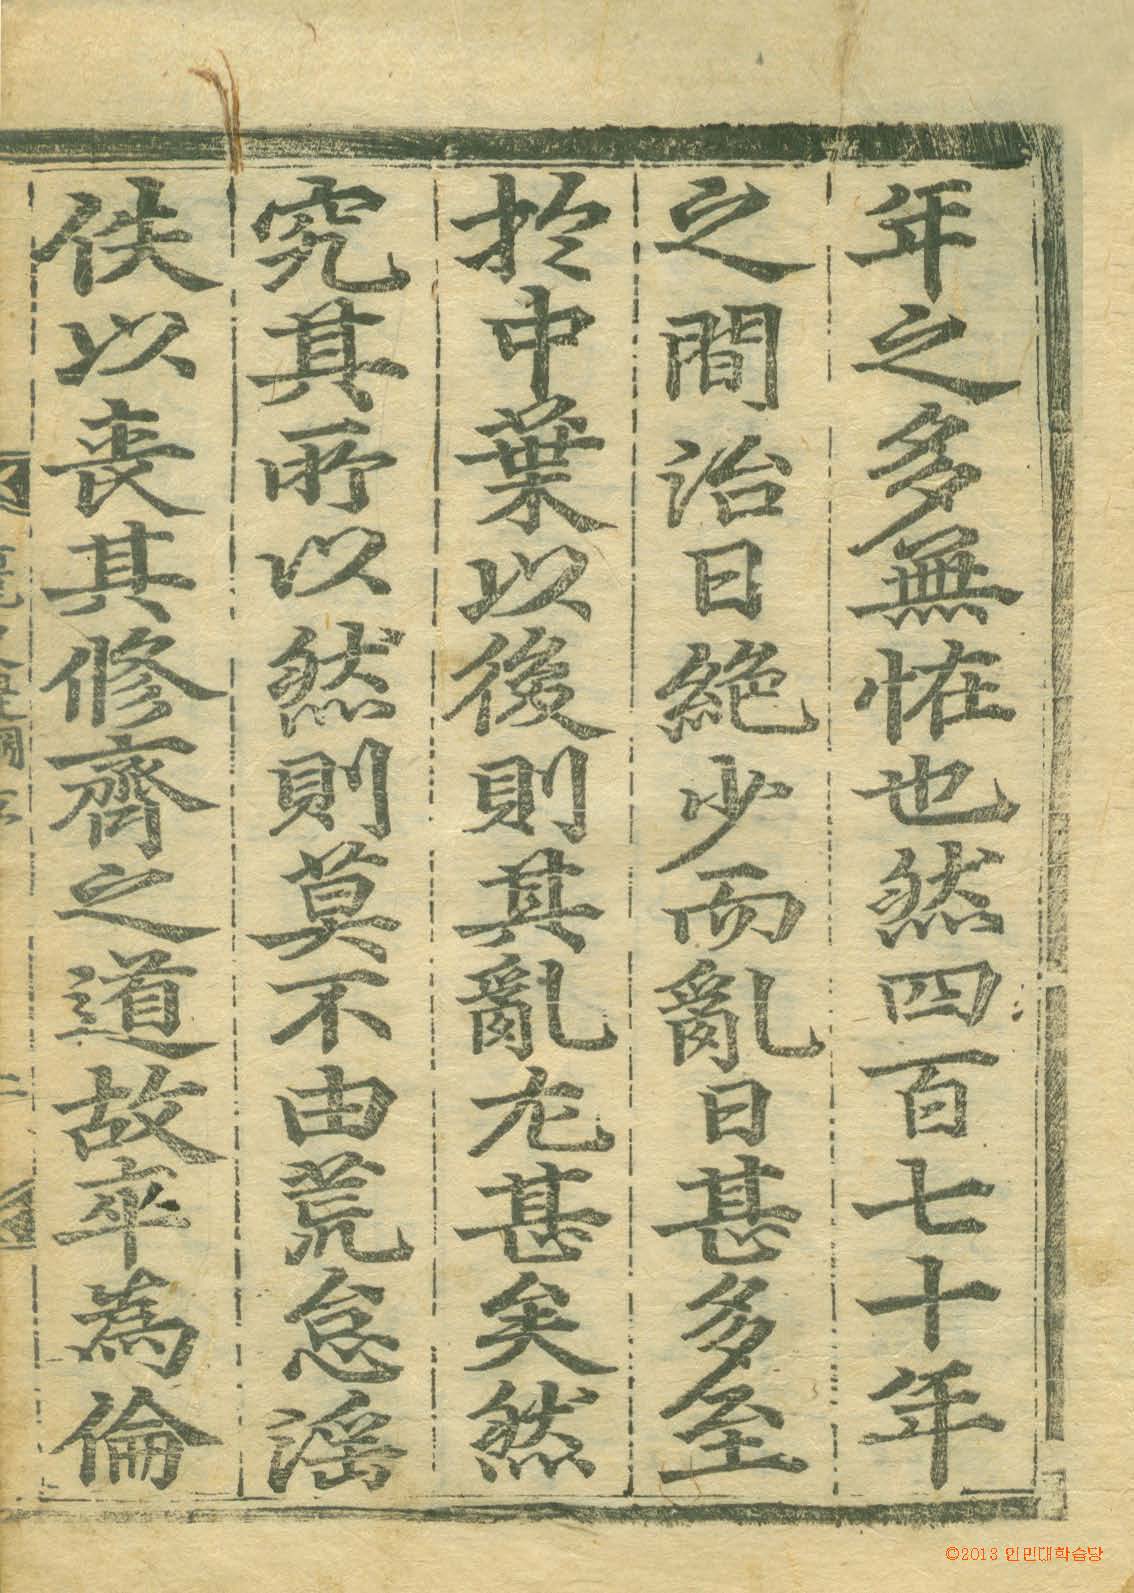 年之多無恠也然四百七十年
之間治日絶少而亂日甚多至
於中葉以後則其亂尤甚矣然
究其所以然則莫不由荒怠淫
佚以喪其修齊之道故卒為倫
二
©2013 인민대학습당